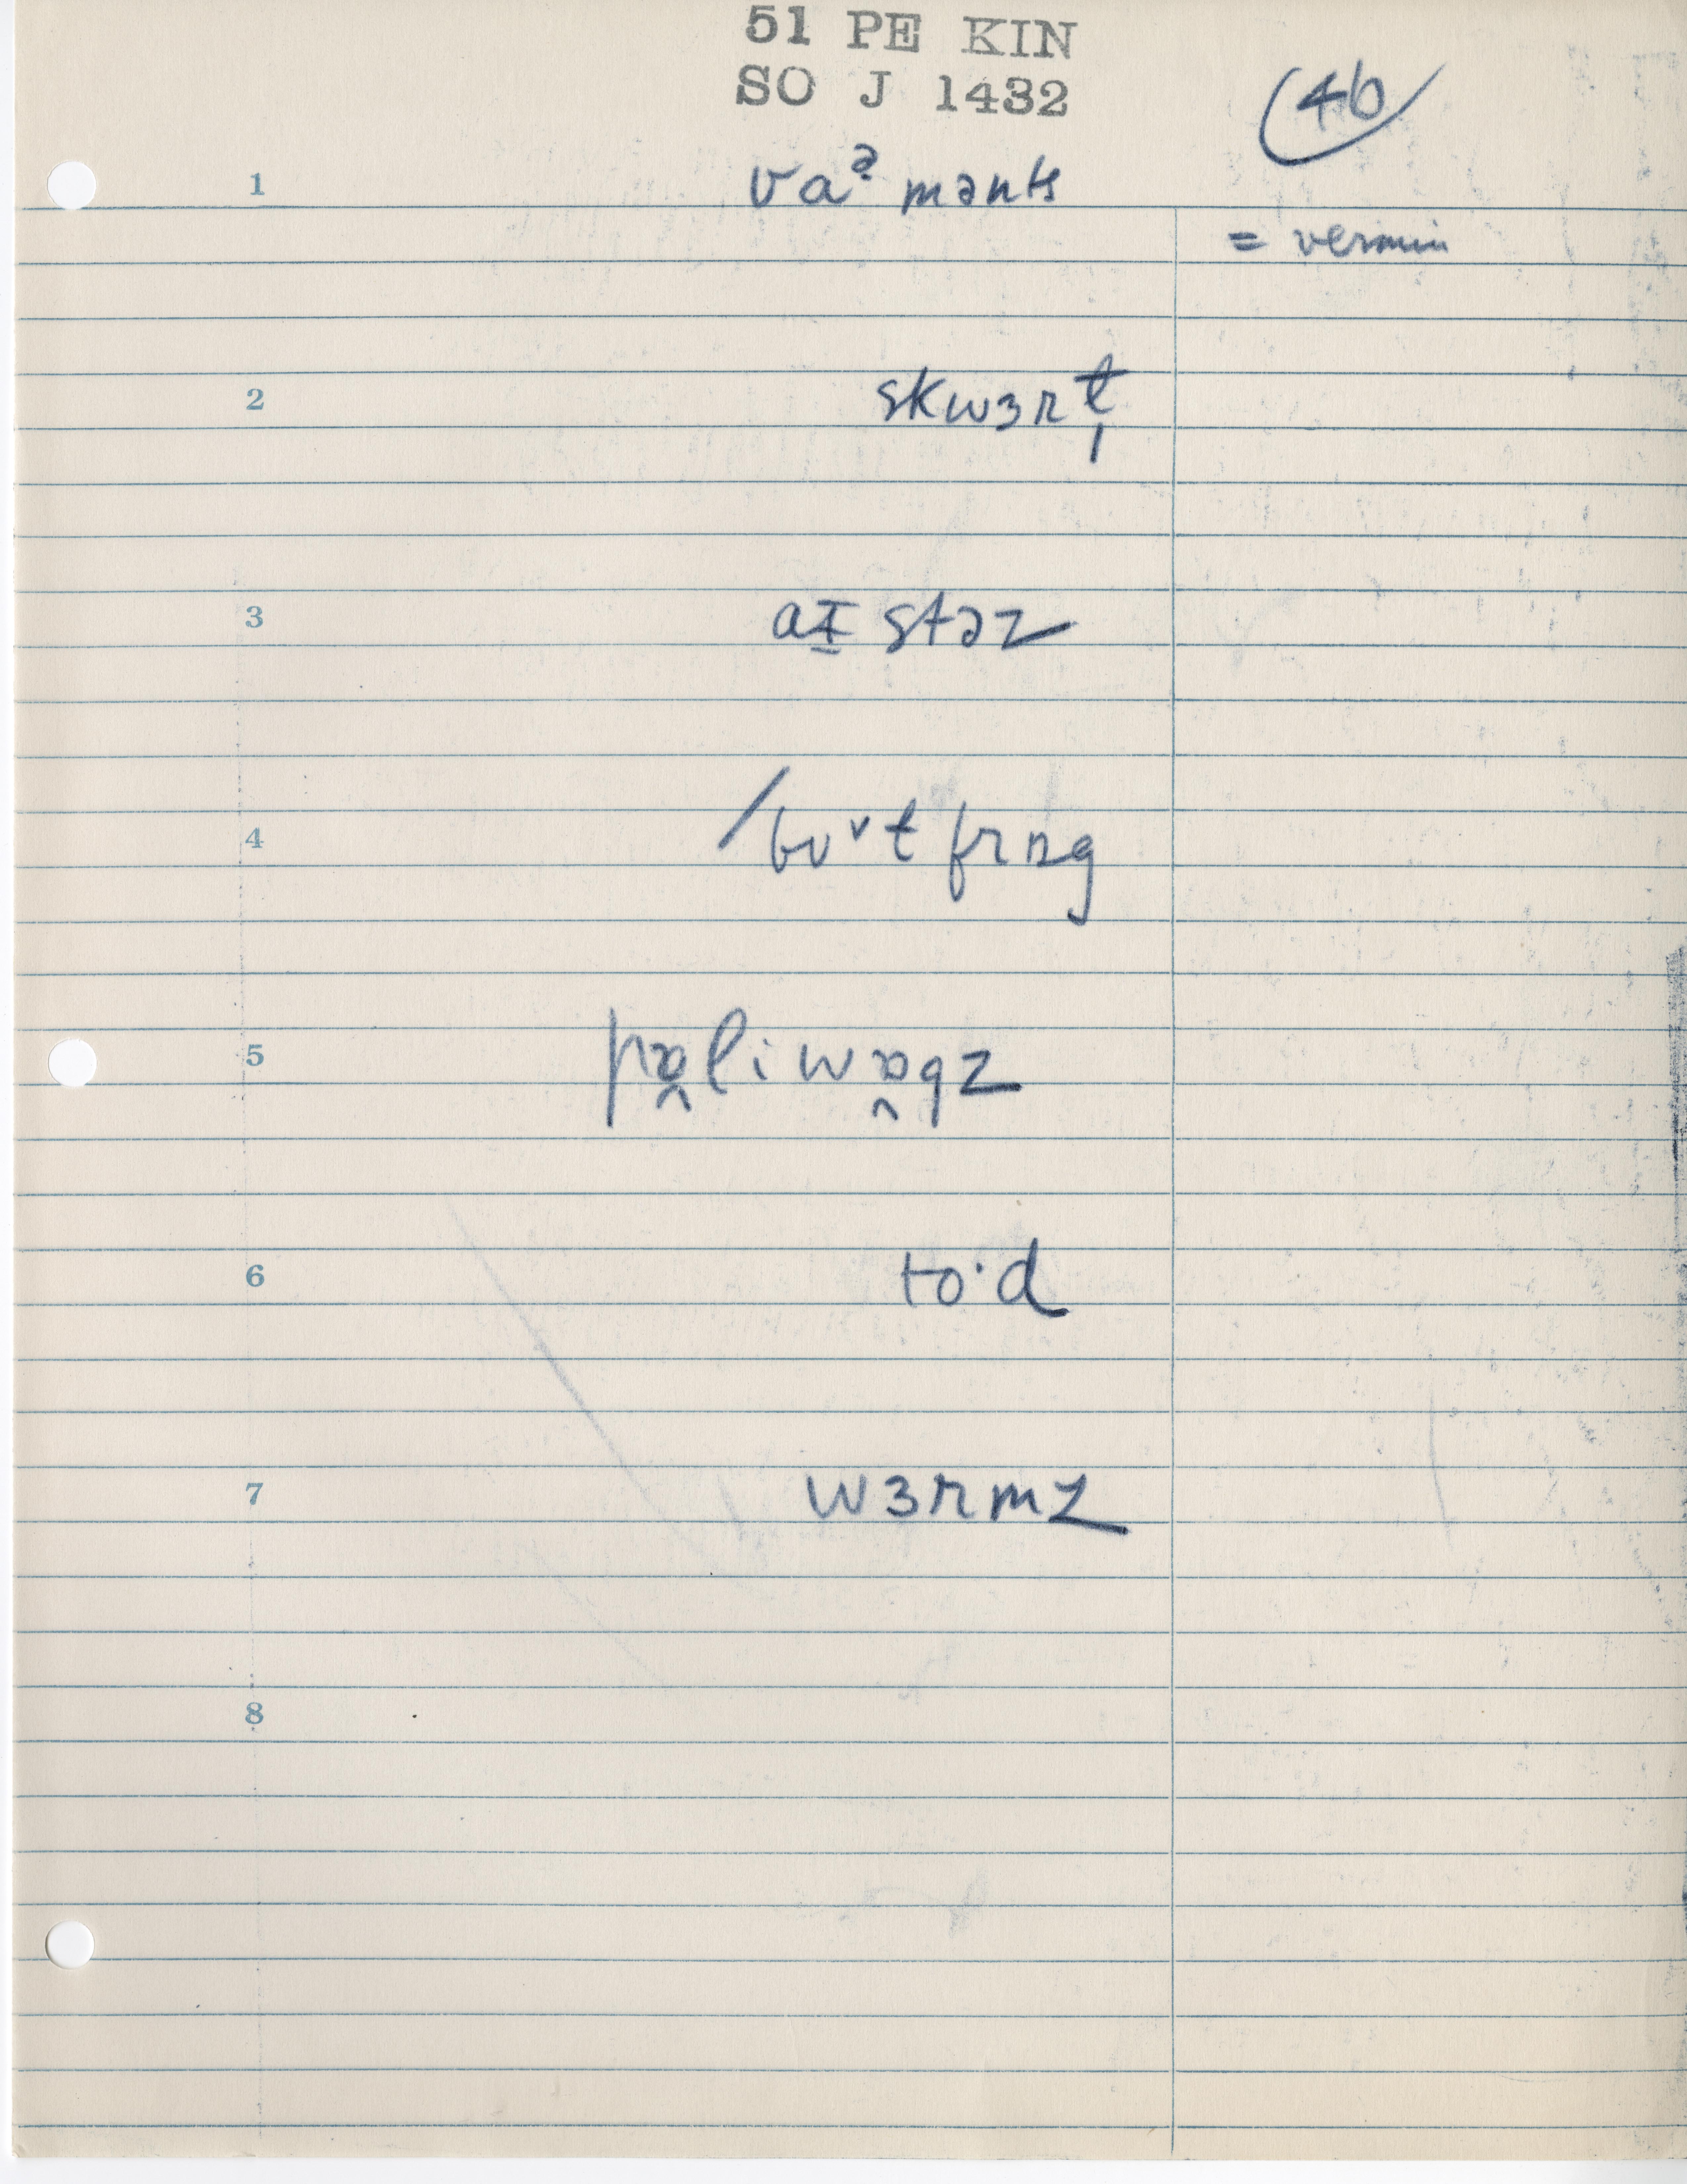 51 PE KIN
SO J 1432
46
1 vaᵊmənts
= vermin
2 skwɜrt̬
3 aɪ̱stəz
4 /bʊᵛt frɒg
5 pɒ̭liwɒ̭gz
6 to·d
7 wɜrmz
8